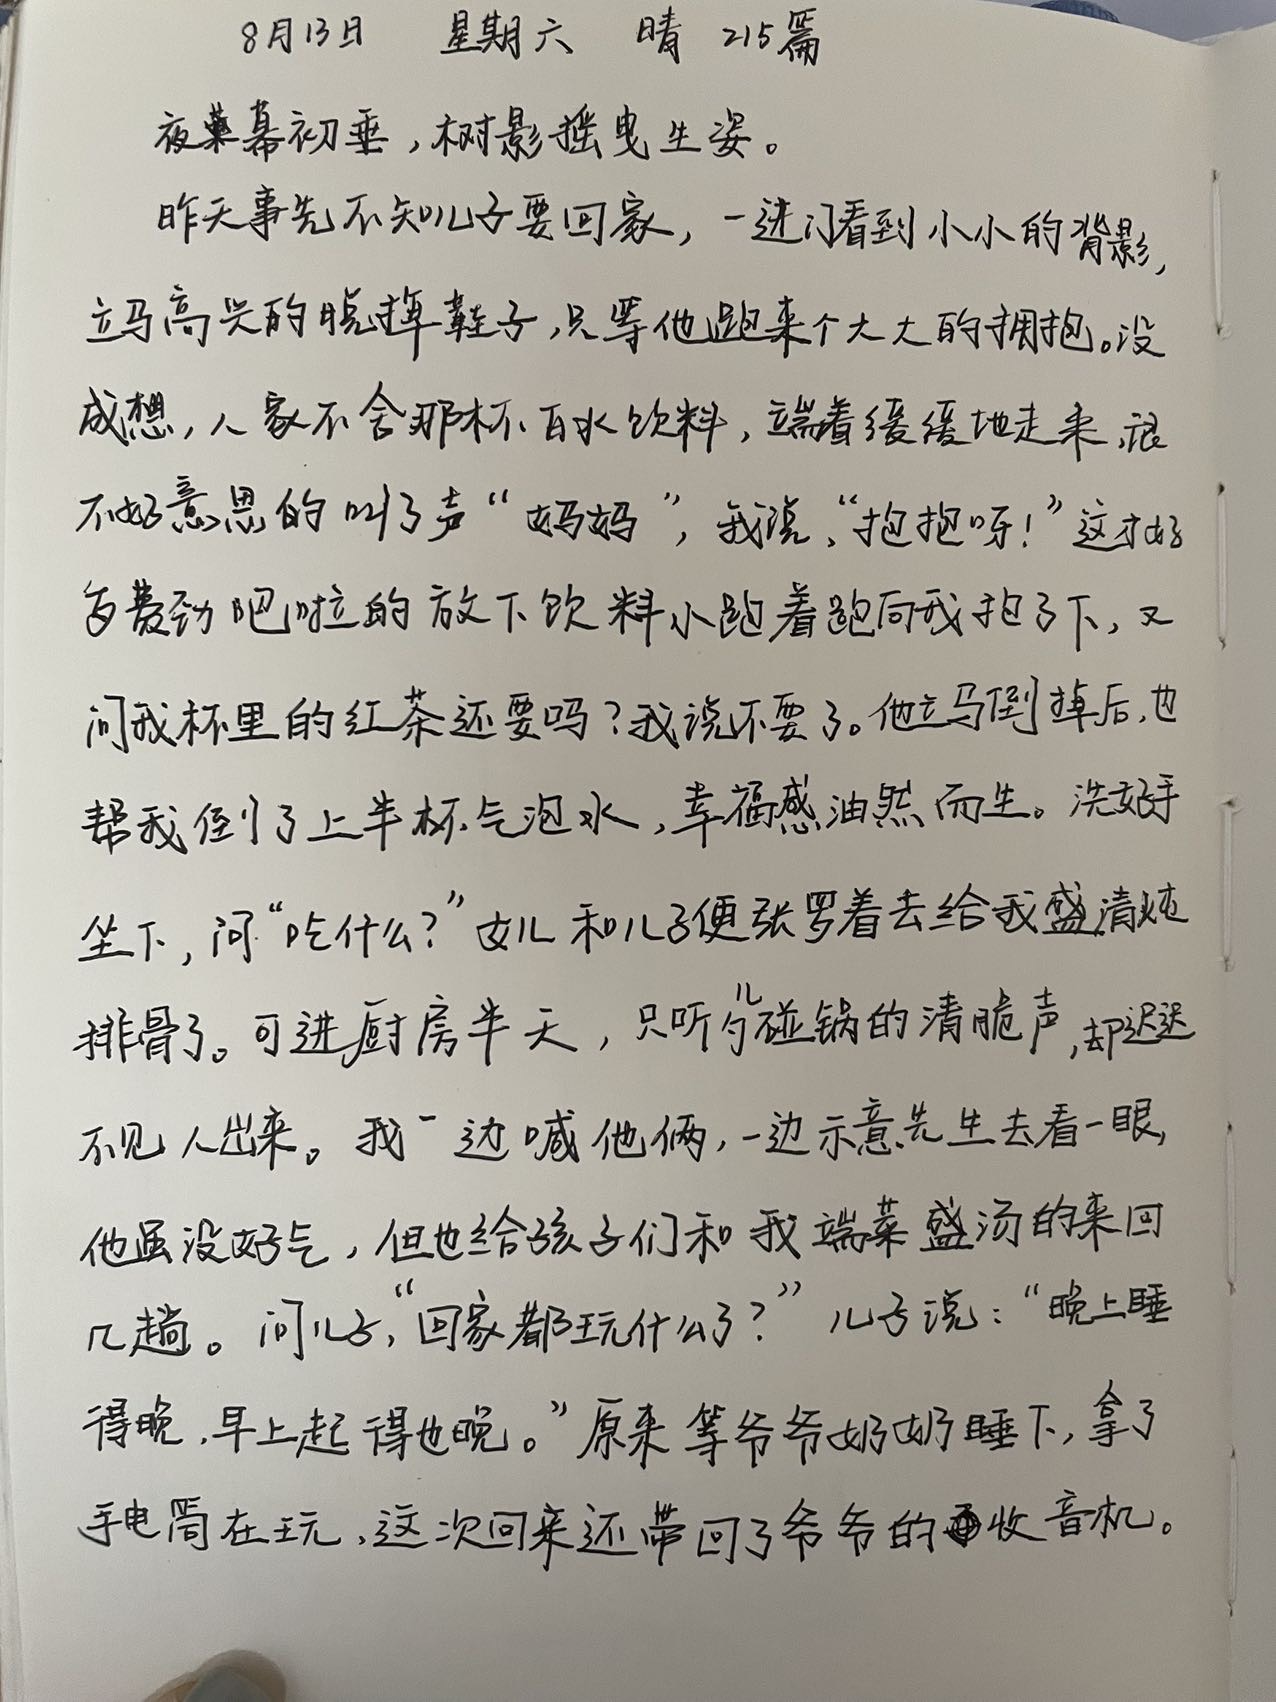 8月13日 星期六 晴 215篇
夜幕初垂,树影摇曳生姿。
昨天事先不知儿子要回家,一进门看到小小的背影,
立马高兴的脱掉鞋子,只等他跑来个大大的拥抱。没
成想,人家不舍那杯百水饮料,端着缓缓地走来,很
不好意思的叫了声“妈妈”,我说,“抱抱呀!”这才好
多费劲吧啦的放下饮料小跑着跑向我抱了下,又
问我杯里的红茶还要吗?我说不要了。他立马倒掉后,也
帮我倒了上半杯气泡水,幸福感油然而生。洗好手
坐下,问“吃什么?”女儿和儿子便张罗着去给我盛清炖
排骨了。可进厨房半天,只听勺儿碰锅的清脆声,却迟迟
不见人出来。我一边喊他俩,一边示意先生去看一眼,
他虽没好气,但也给孩子们和我端菜盛汤的来回
几趟。问儿子,“回家都玩什么了?”儿子说:“晚上睡
得晚,早上起得也晚。”原来等爷爷奶奶睡下,拿了
手电筒在玩,这次回来还带回了爷爷的收音机。